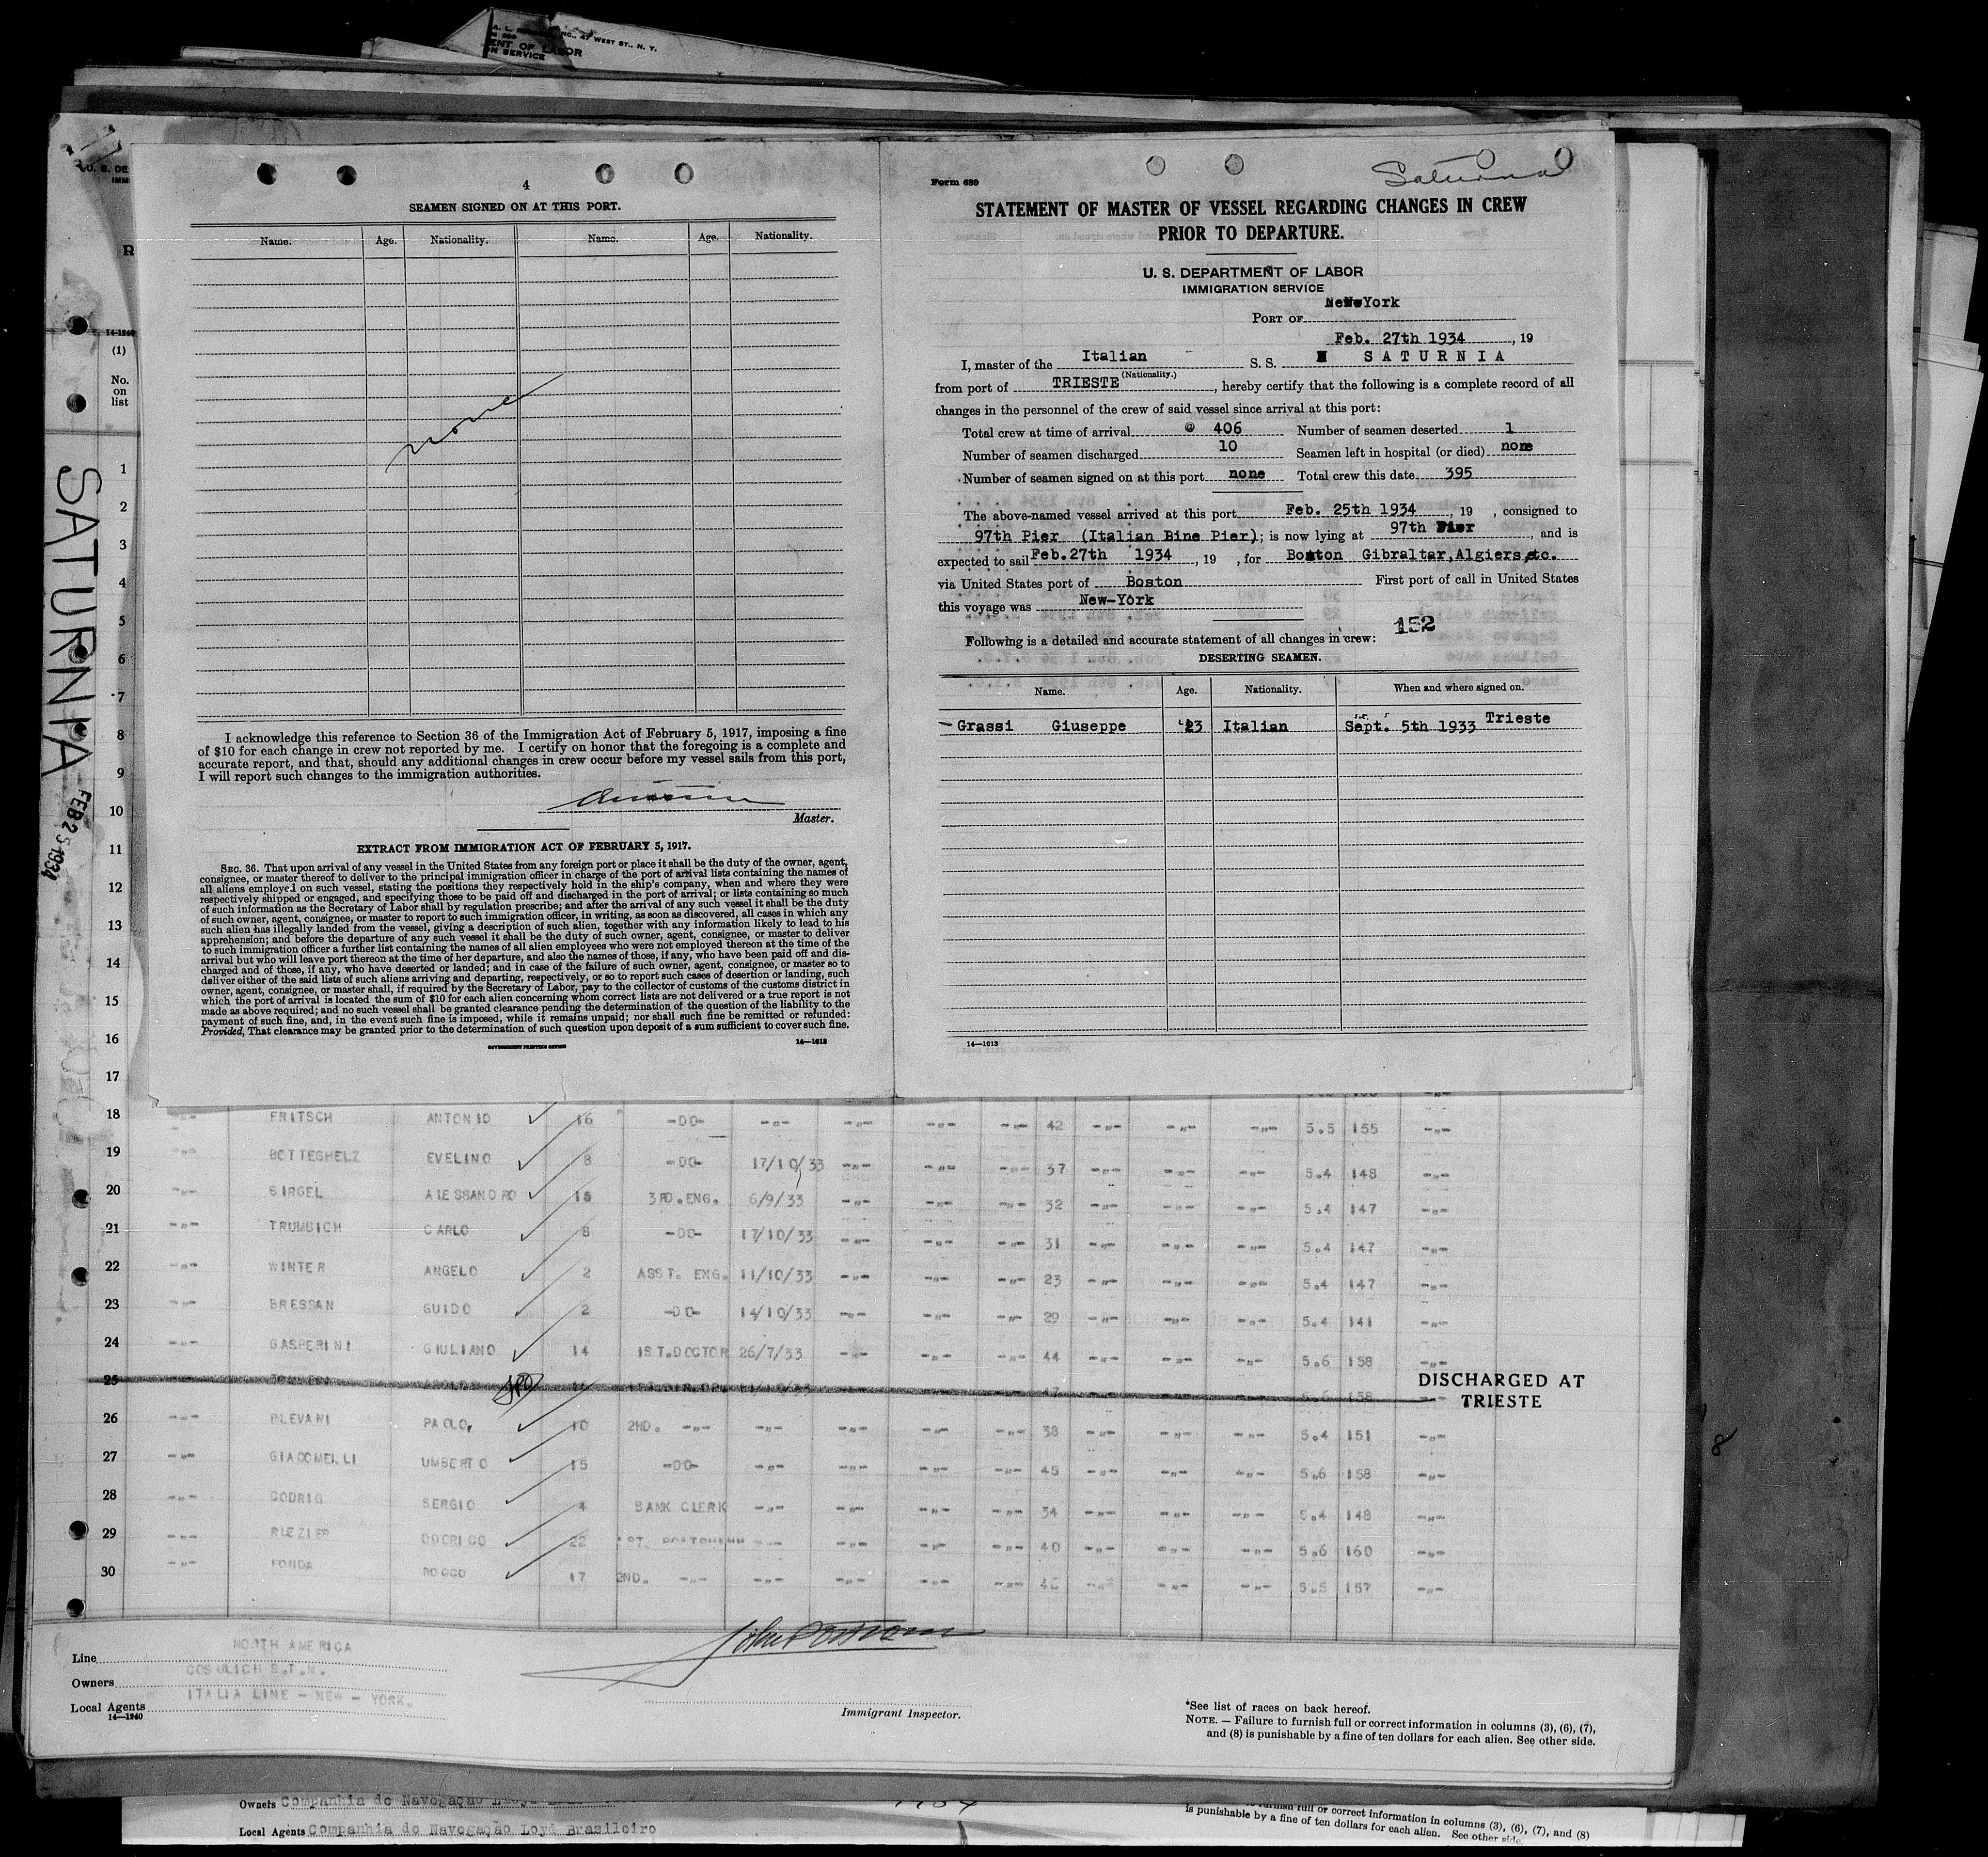 A. L. INC., 47 WEST ST., N. Y.
ENT OF LABOR
N SERVICE
U. S. DE
IMM
R
14-1240
(1)
No.
on
list
SATURNIA
FEB 25 1934
4
SEAMEN SIGNED ON AT THIS PORT.
Name. Age. Nationality. Name. Age. Nationality.
none
I acknowledge this reference to Section 36 of the Immigration Act of February 5, 1917, imposing a fine
of $10 for each change in crew not reported by me. I certify on honor that the foregoing is a complete and
accurate report, and that, should any additional changes in crew occur before my vessel sails from this port,
I will report such changes to the immigration authorities.
Master.
EXTRACT FROM IMMIGRATION ACT OF FEBRUARY 5, 1917.
SEC. 36. That upon arrival of any vessel in the United States from any foreign port or place it shall be the duty of the owner, agent,
consignee, or master thereof to deliver to the principal immigration officer in charge of the port of arrival lists containing the names of
all aliens employed on such vessel, stating the positions they respectively hold in the ship's company, when and where they were
respectively shipped or engaged, and specifying those to be paid off and discharged in the port of arrival; or lists containing so much
of such information as the Secretary of Labor shall by regulation prescribe; and after the arrival of any such vessel it shall be the duty
of such owner, agent, consignee, or master to report to such immigration officer, in writing, as soon as discovered, all cases in which any
such alien has illegally landed from the vessel, giving a description of such alien, together with any information likely to lead to his
apprehension; and before the departure of any such vessel it shall be the duty of such owner, agent, consignee, or master to deliver
to such immigration officer a further list containing the names of all alien employees who were not employed thereon at the time of the
arrival but who will leave port thereon at the time of her departure, and also the names of those, if any, who have been paid off and dis-
charged and of those, if any, who have deserted or landed; and in case of the failure of such owner, agent, consignee, or master so to
deliver either of the said lists of such aliens arriving and departing, respectively, or so to report such cases of desertion or landing, such
owner, agent, consignee, or master shall, if required by the Secretary of Labor, pay to the collector of customs of the customs district in
which the port of arrival is located the sum of $10 for each alien concerning whom correct lists are not delivered or a true report is not
made as above required; and no such vessel shall be granted clearance pending the determination of the question of the liability to the
payment of such fine, and, in the event such fine is imposed, while it remains unpaid; nor shall such fine be remitted or refunded:
Provided, That clearance may be granted prior to the determination of such question upon deposit of a sum sufficient to cover such fine.
GOVERNMENT PRINTING OFFICE 14—1613
Form 689
Saturnia
STATEMENT OF MASTER OF VESSEL REGARDING CHANGES IN CREW
PRIOR TO DEPARTURE.
U. S. DEPARTMENT OF LABOR
IMMIGRATION SERVICE
PORT OF New York
Feb. 27th 1934, 19
I, master of the Italian S. S. SATURNIA
(Nationality.)
from port of TRIESTE, hereby certify that the following is a complete record of all
changes in the personnel of the crew of said vessel since arrival at this port:
Total crew at time of arrival @ 406 Number of seamen deserted 1
Number of seamen discharged 10 Seamen left in hospital (or died) none
Number of seamen signed on at this port none Total crew this date 395
The above-named vessel arrived at this port Feb. 25th 1934, 19 , consigned to
97th Pier (Italian Bine Pier); is now lying at 97th Pier, and is
expected to sail Feb.27th 1934, 19 , for Boston Gibraltar,Algiers,etc.
via United States port of Boston First port of call in United States
this voyage was New-York
Following is a detailed and accurate statement of all changes in crew: 152
DESERTING SEAMEN.
Name. Age. Nationality. When and where signed on.
Grassi Giuseppe 23 Italian Sept. 5th 1933 Trieste
14—1613
1
2
3
4
5
6
7
8
9
10
11
12
13
14
15
16
17
18 -"- FRITSCH ANTONIO 16 -DO- -"- -"- -"- -"- 42 -"- -"- -"- 5.5 155 -"-
19 -"- BOTTEGHELZ EVELINO 8 -DO- 17/10/33 -"- -"- -"- 37 -"- -"- -"- 5.4 148 -"-
20 -"- BIRGEL ALESSANDRO 15 3RD.ENG. 6/9/33 -"- -"- -"- 32 -"- -"- -"- 5.4 147 -"-
21 -"- TRUMBICH CARLO 8 -DO- 17/10/33 -"- -"- -"- 31 -"- -"- -"- 5.4 147 -"-
22 -"- WINTER ANGELO 2 ASST. ENG. 11/10/33 -"- -"- -"- 23 -"- -"- -"- 5.4 147 -"-
23 -"- BRESSAN GUIDO 2 -DO- 14/10/33 -"- -"- -"- 29 -"- -"- -"- 5.4 141 -"-
24 -"- GASPERINI GIULIANO 14 1ST.DOCTOR 26/7/33 -"- -"- -"- 44 -"- -"- -"- 5.6 158 -"-
25 5.6 158 DISCHARGED AT
TRIESTE
26 -"- PLEVANI PAOLO, 10 2ND. -"- -"- -"- -"- -"- 38 -"- -"- -"- 5.4 151 -"-
27 -"- GIACOMELLI UMBERTO 15 -DO- -"- -"- -"- -"- 45 -"- -"- -"- 5.6 158 -"-
28 -"- CODRIG SERGIO 4 BANK CLERK -"- -"- -"- -"- 34 -"- -"- -"- 5.4 148 -"-
29 -"- RUZZIER ODORICO 22 -"- -"- -"- -"- 40 -"- -"- -"- 5.6 160 -"-
30 -"- FONDA ROCCO 17 2ND. -"- -"- -"- -"- -"- 46 -"- -"- -"- 5.5 157 -"-
8
Line NORTH AMERICA
Owners COSULICH S.T.N.
Local Agents ITALIA LINE - NEW - YORK.
14—1240
Immigrant Inspector.
*See list of races on back hereof.
NOTE. — Failure to furnish full or correct information in columns (3), (6), (7),
and (8) is punishable by a fine of ten dollars for each alien. See other side.
Owners Companhia de Navegação
Local Agents Companhia de Navogação Loyd Brasileiro
to furnish full or correct information in columns (3), (6), (7), and (8)
is punishable by a fine of ten dollars for each alien. See other side.